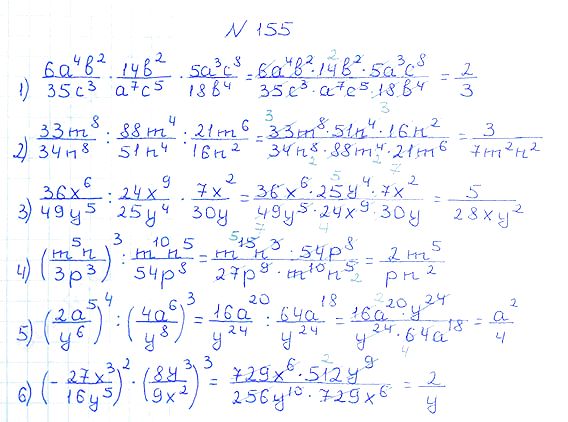 N 155
1) 6a⁴в²/35c³ · 14в²/a⁷c⁵ · 5a³c⁸/18в⁴ = 6a⁴в² · 14в² · 5a³c⁸/35c³ · a⁷c⁵ · 18в⁴ = 2/3
2) 33m⁸/34n⁸ : 88m⁴/51n⁴ : 21m⁶/16n² = 33m⁸ · 51n⁴ · 16n²/34n⁸ · 88m⁴ · 21m⁶ = 3/7m²n²
3) 36x⁶/49y⁵ : 24x⁹/25y⁴ · 7x²/30y = 36x⁶ · 25y⁴ · 7x²/49y⁵ · 24x⁹ · 30y = 5/28xy²
4) (m⁵n/3p³)³ : m¹⁰n⁵/54p⁸ = m¹⁵n³ · 54p⁸/27p⁹ · m¹⁰n⁵ = 2m⁵/pn²
5) (2a⁵/y⁶)⁴ : (4a⁶/y⁸)³ = 16a²⁰/y²⁴ : 64a¹⁸/y²⁴ = 16a²⁰ · y²⁴/y²⁴ · 64a¹⁸ = a²/4
6) (-27x³/16y⁵)² · (8y³/9x²)³ = 729x⁶ · 512y⁹/256y¹⁰ · 729x⁶ = 2/y